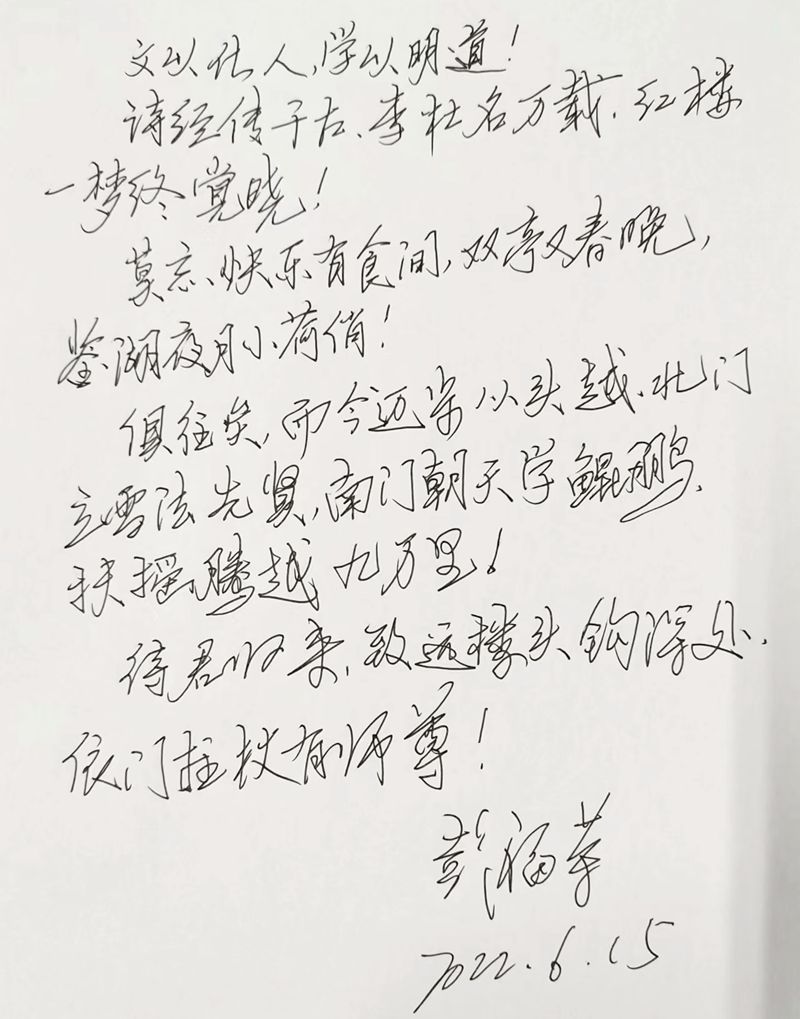 文以化人，学以明道！
诗经传千古、李杜名万载、红楼
一梦终觉晓！
莫忘、快乐有食间，双亭又春晚，
鉴湖夜月小荷俏！
俱往矣，而今迈步从头越、北门
立雪法先贤，南门朝天学鲲鹏、
扶摇腾越九万里！
待君归来、致远楼头钩深处、
依门拄杖有师尊！
彭福荣
2022.6.15